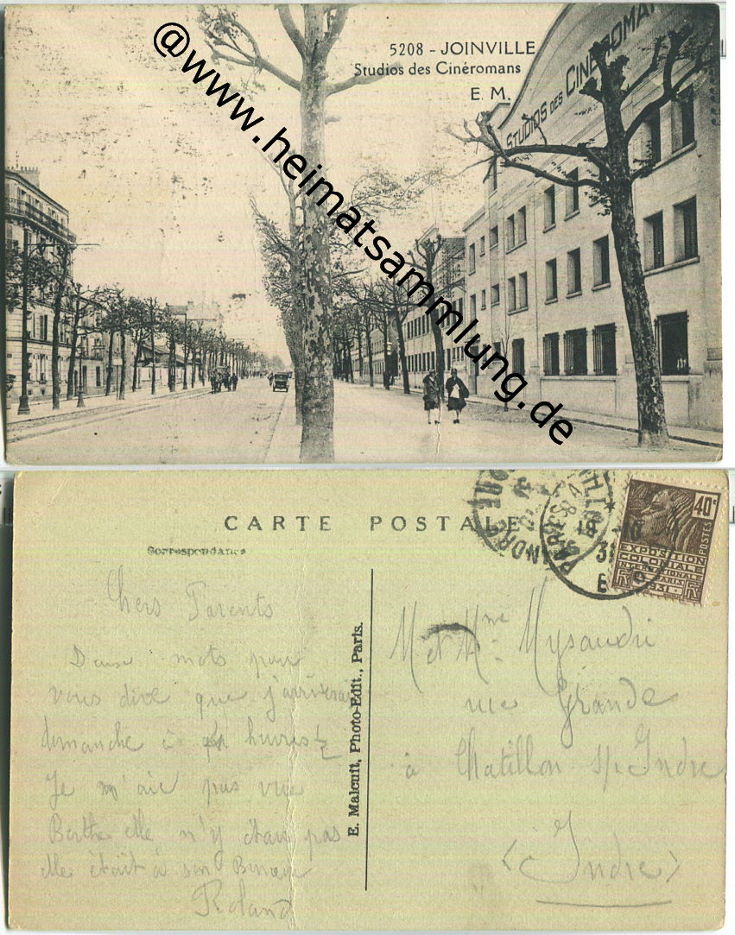 5208 - JOINVILLE
Studios des Cinéromans
E. M.
STUDIOS DES CINÉROMANS
@www.heimatsammlung.de
CARTE POSTALE
Correspondance
Chers Parents
Deux mots pour
vous dire que j'arriverai
dimanche à heures ½
Je n'ai pas vue
Berthe elle n'y étais pas
elle était à son Bureau
Roland
E. Malcuit, Photo-Edit., Paris.
M et Mme
rue Grande
à Chatillon s/Indre
(Indre)
40c
POSTES
EXPOSITION
COLONIALE
INTERNATIONALE
PARIS 1931